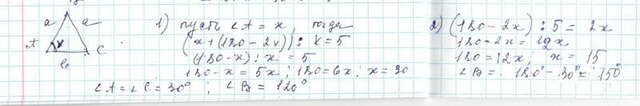 a a
A x C
b
1) пусть ∠A = x, тогда
(x + (180 - 2x)) : x = 5
(180 - x) : x = 5
180 - x = 5x ; 180 = 6x ; x = 30
∠A = ∠C = 30° ; ∠B = 120°
2) (180 - 2x) : 5 = 2x
180 - 2x = 10x
180 = 12x, x = 15
∠B = 180° - 30° = 150°